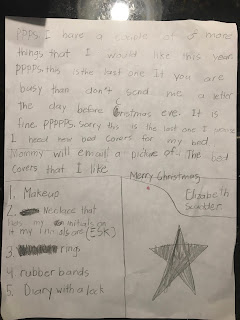 PPPS I have a couple of more
things that I would like this year.
PPPPS, this is the last one If you are
busy than don't send me a letter
the day before Cristmas eve. It is
fine. PPPPPS, sorry this is the last one I swear
I need new bed covers for my bed
Mommy will email a picture of. The bed
covers that I like
Merry Christmas
Elizabeth
1. Makeup
2. Necklace that
has my initials on
it my initials are (ESK)
3. rings
4. rubber bands
5. Diary with a lock